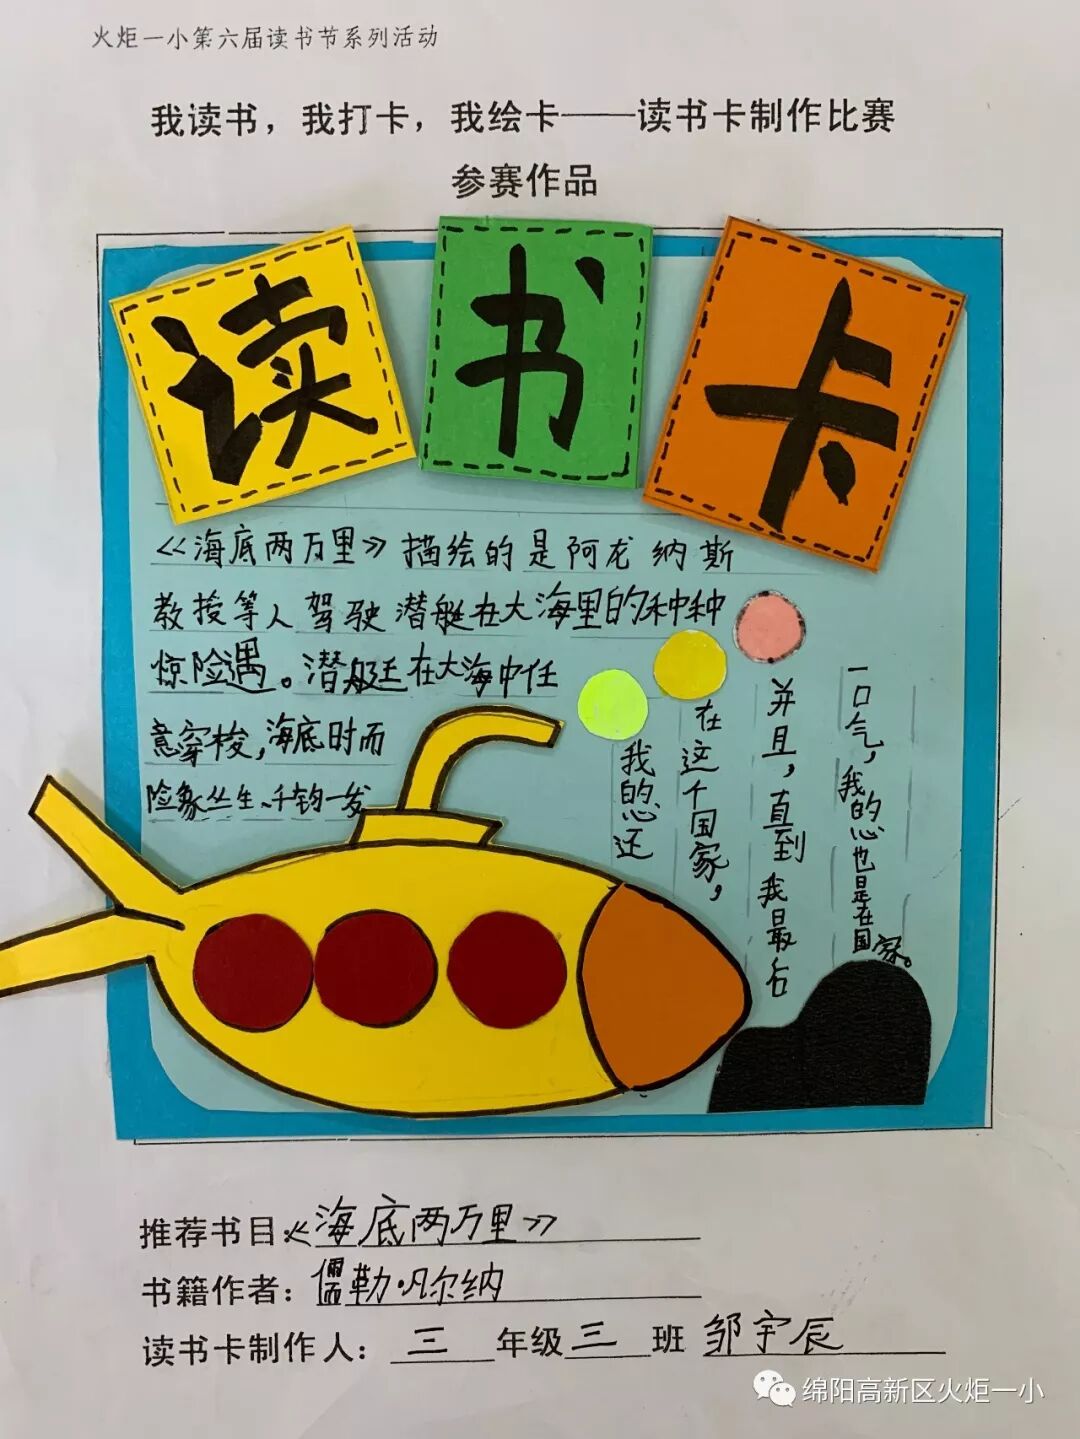 火炬一小第六届读书节系列活动
我读书，我打卡，我绘卡——读书卡制作比赛
参赛作品
读书卡
《海底两万里》描绘的是阿龙纳斯
教授等人驾驶潜艇在大海里的种种
惊险遇。潜艇在大海中任
意穿梭，海底时而
险象丛生、千钧一发
我的心还
在这个国家，
并且，直到我最后
一口气，我的心也是在国家。
推荐书目：《海底两万里》
书籍作者：儒勒·凡尔纳
读书卡制作人：三年级三班 邹宇辰
绵阳高新区火炬一小